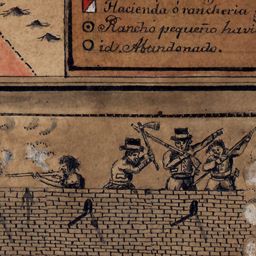 Hacienda ó rancheria
Rancho pequeño havi
id. Abandonado.